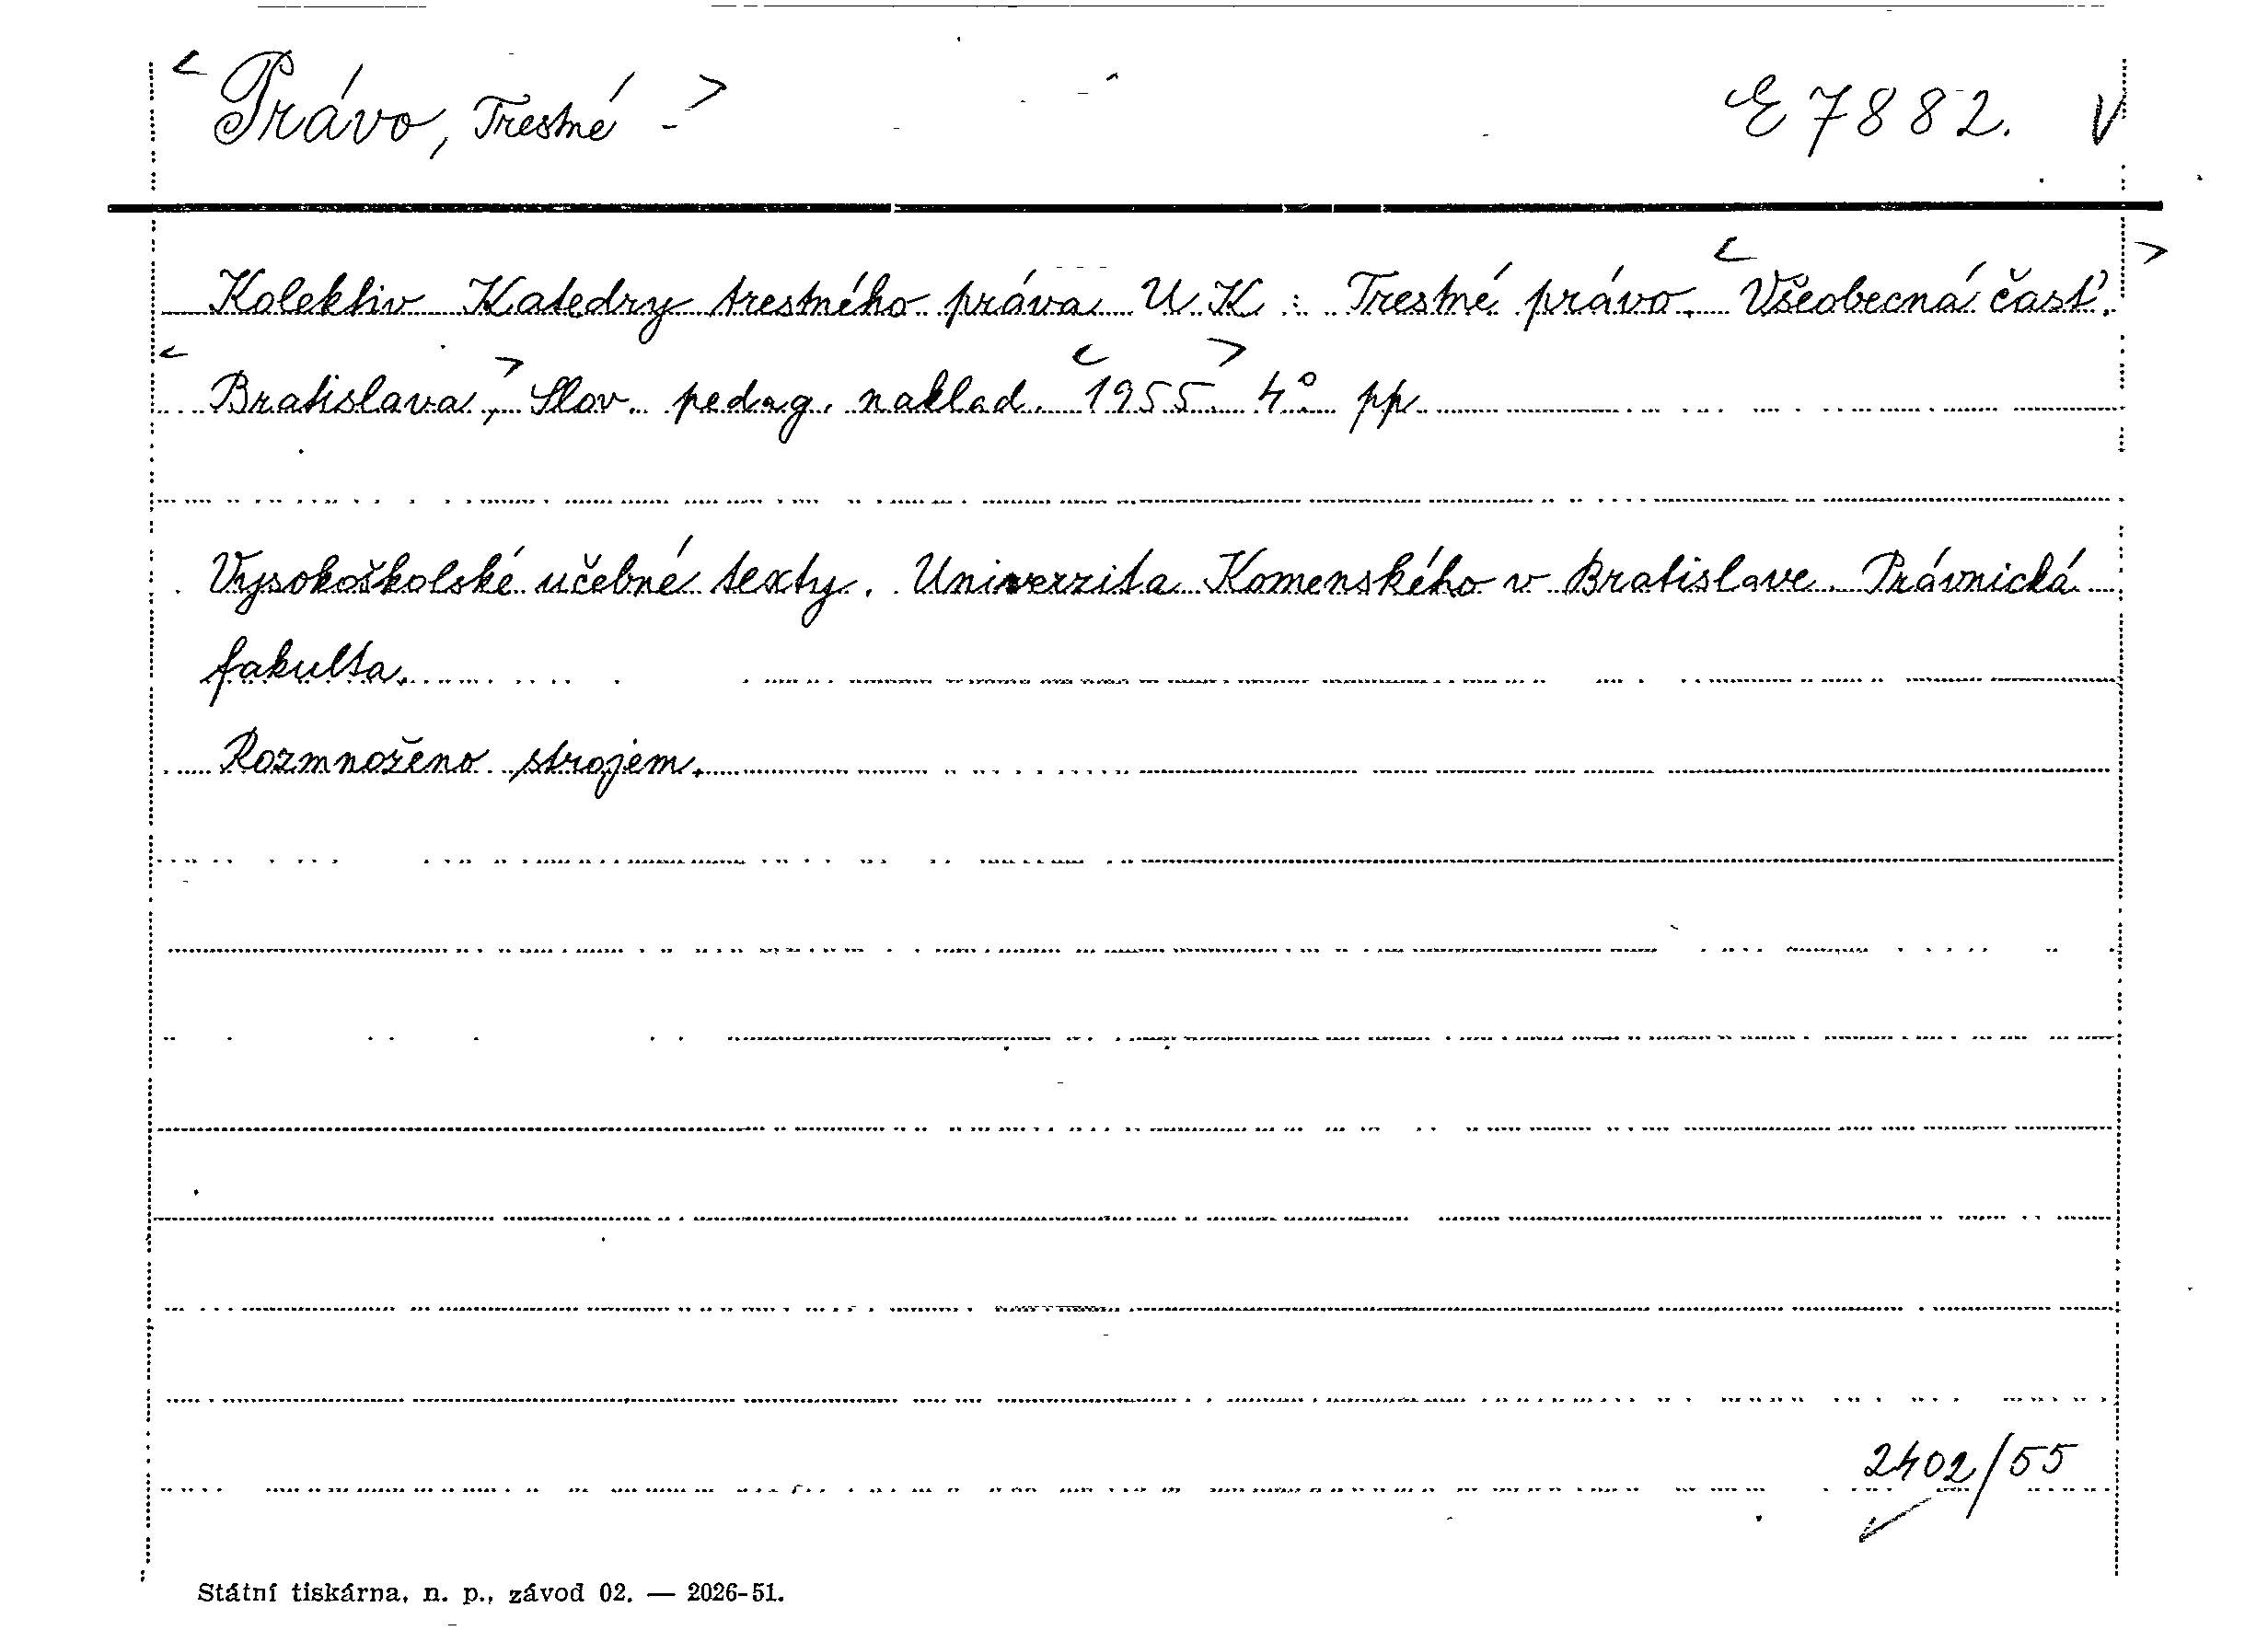 < Právo, Trestné - > E 7882. V
Kolektiv Katedry trestného práva U.K : Trestné právo. < Všeobecná časť. >
< Bratislava, > Slov. pedag. naklad. < 1955 > 4° pp
Vysokoškolské učebné texty. Univerzita Komenského v Bratislave. Právnická
fakulta.
Rozmnoženo strojem.
2402/55
Státní tiskárna, n. p., závod 02. — 2026-51.